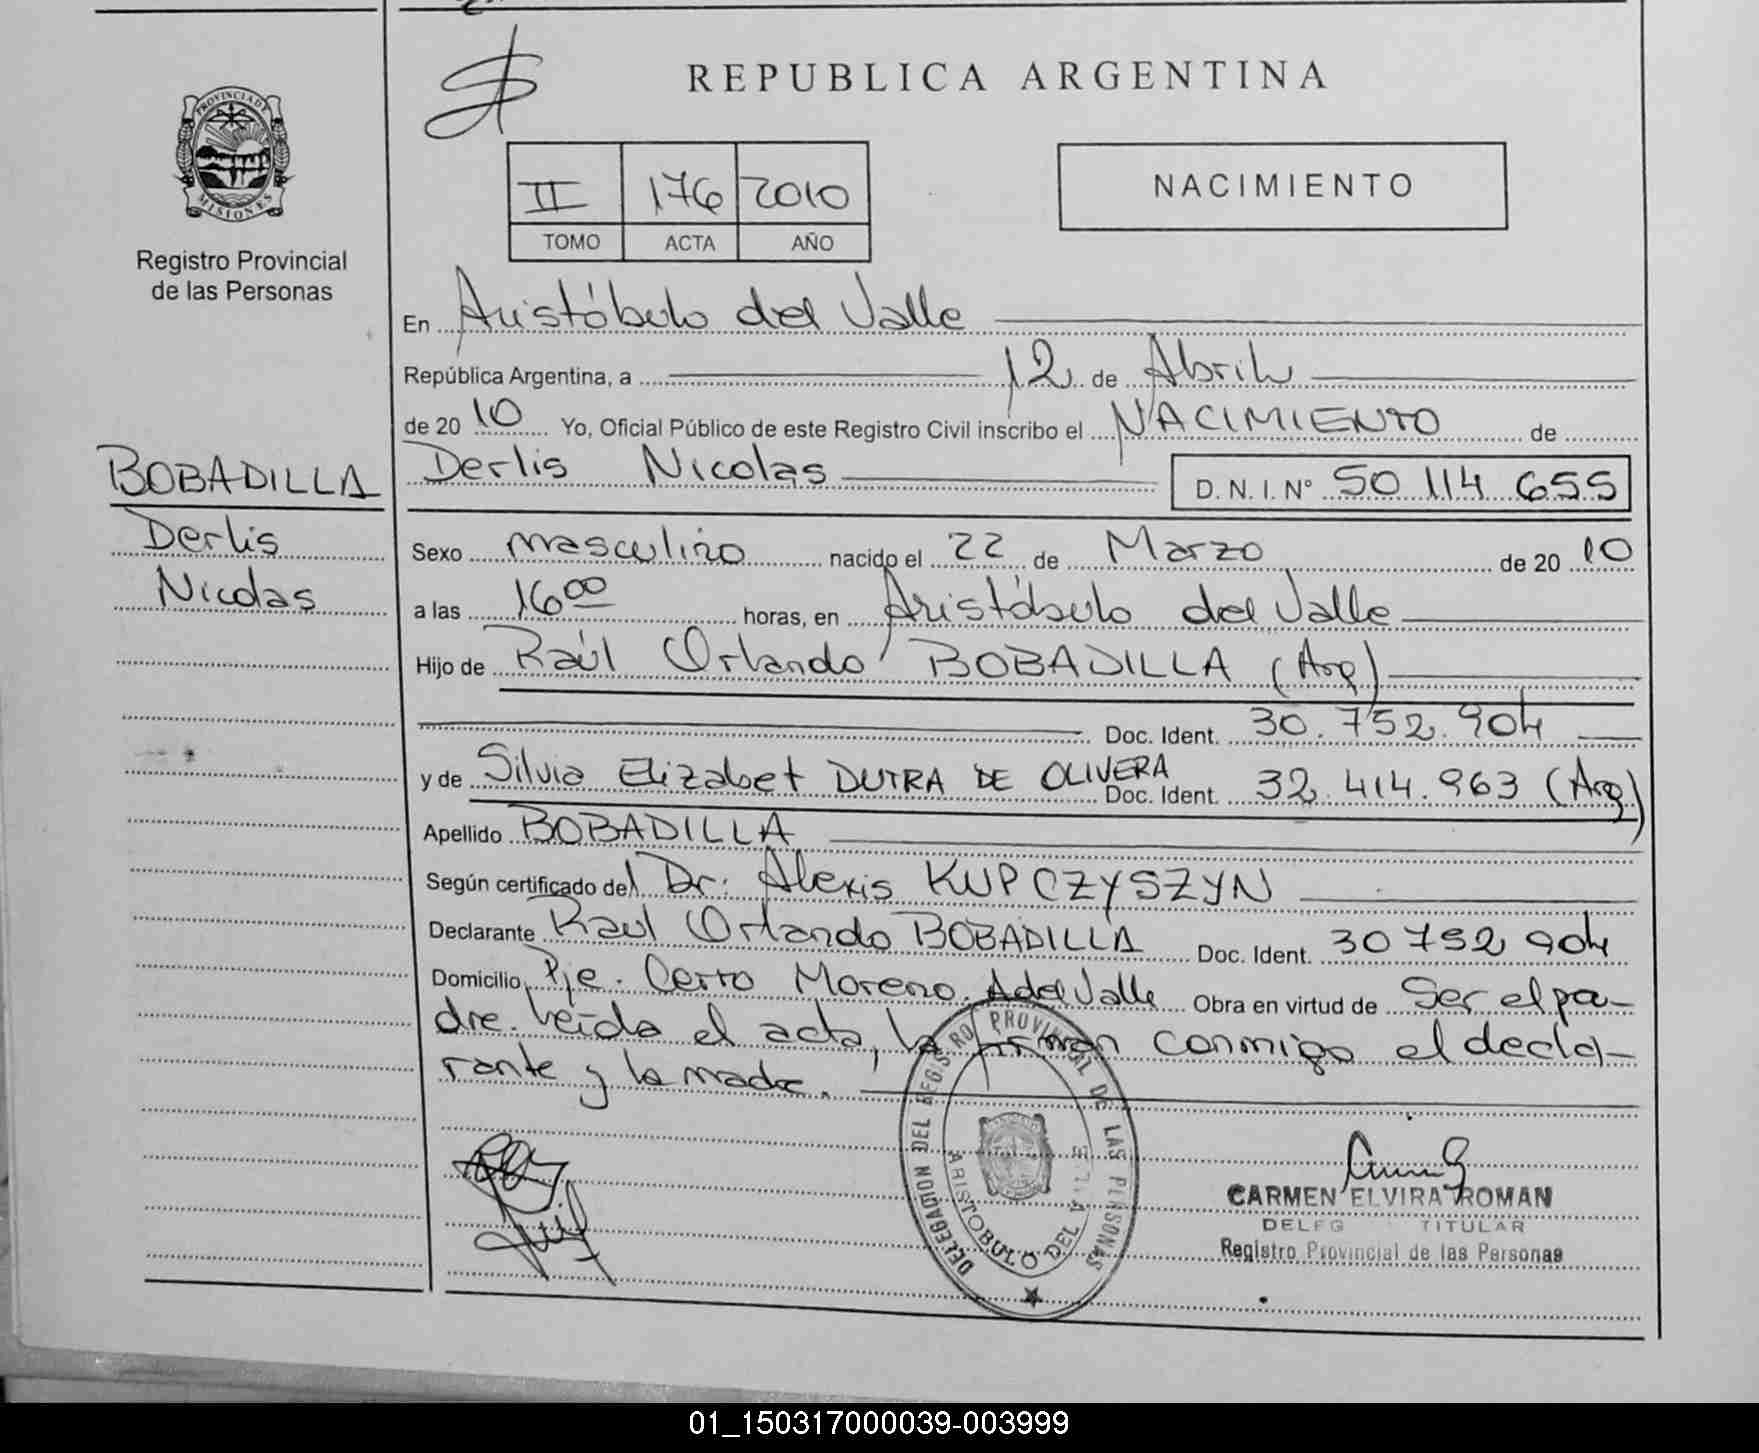 PROVINCIA DE
MISIONES
Registro Provincial
de las Personas
BOBADILLA
Derlis
Nicolas
REPUBLICA ARGENTINA
II 176 2010
TOMO ACTA AÑO
NACIMIENTO
En Aristóbulo del Valle
República Argentina, a 12 de Abril
de 2010 Yo, Oficial Público de este Registro Civil inscribo el NACIMIENTO de
Derlis Nicolas D.N.I. Nº 50 114 655
Sexo masculino nacido el 22 de Marzo de 2010
a las 16 00 horas, en Aristóbulo del Valle
Hijo de Raúl Orlando BOBADILLA (Arg)
Doc. Ident. 30.752.904
y de Silvia Elizabet DUTRA DE OLIVERA Doc. Ident. 32.414.963 (Arg)
Apellido BOBADILLA
Según certificado del Dr. Alexis KUPCZYSZYN
Declarante Raul Orlando BOBADILLA Doc. Ident. 30 752 904
Domicilio Pje. Cerro Moreno. A del Valle Obra en virtud de Ser el pa-
dre. Leída el acta, la firman conmigo el decla-
rante y la madre.
DELEGACION DEL REGISTRO PROVINCIAL DE LAS PERSONAS
ARISTOBULO DEL VALLE
CARMEN ELVIRA ROMAN
DELEG TITULAR
Registro Provincial de las Personas
01_150317000039-003999